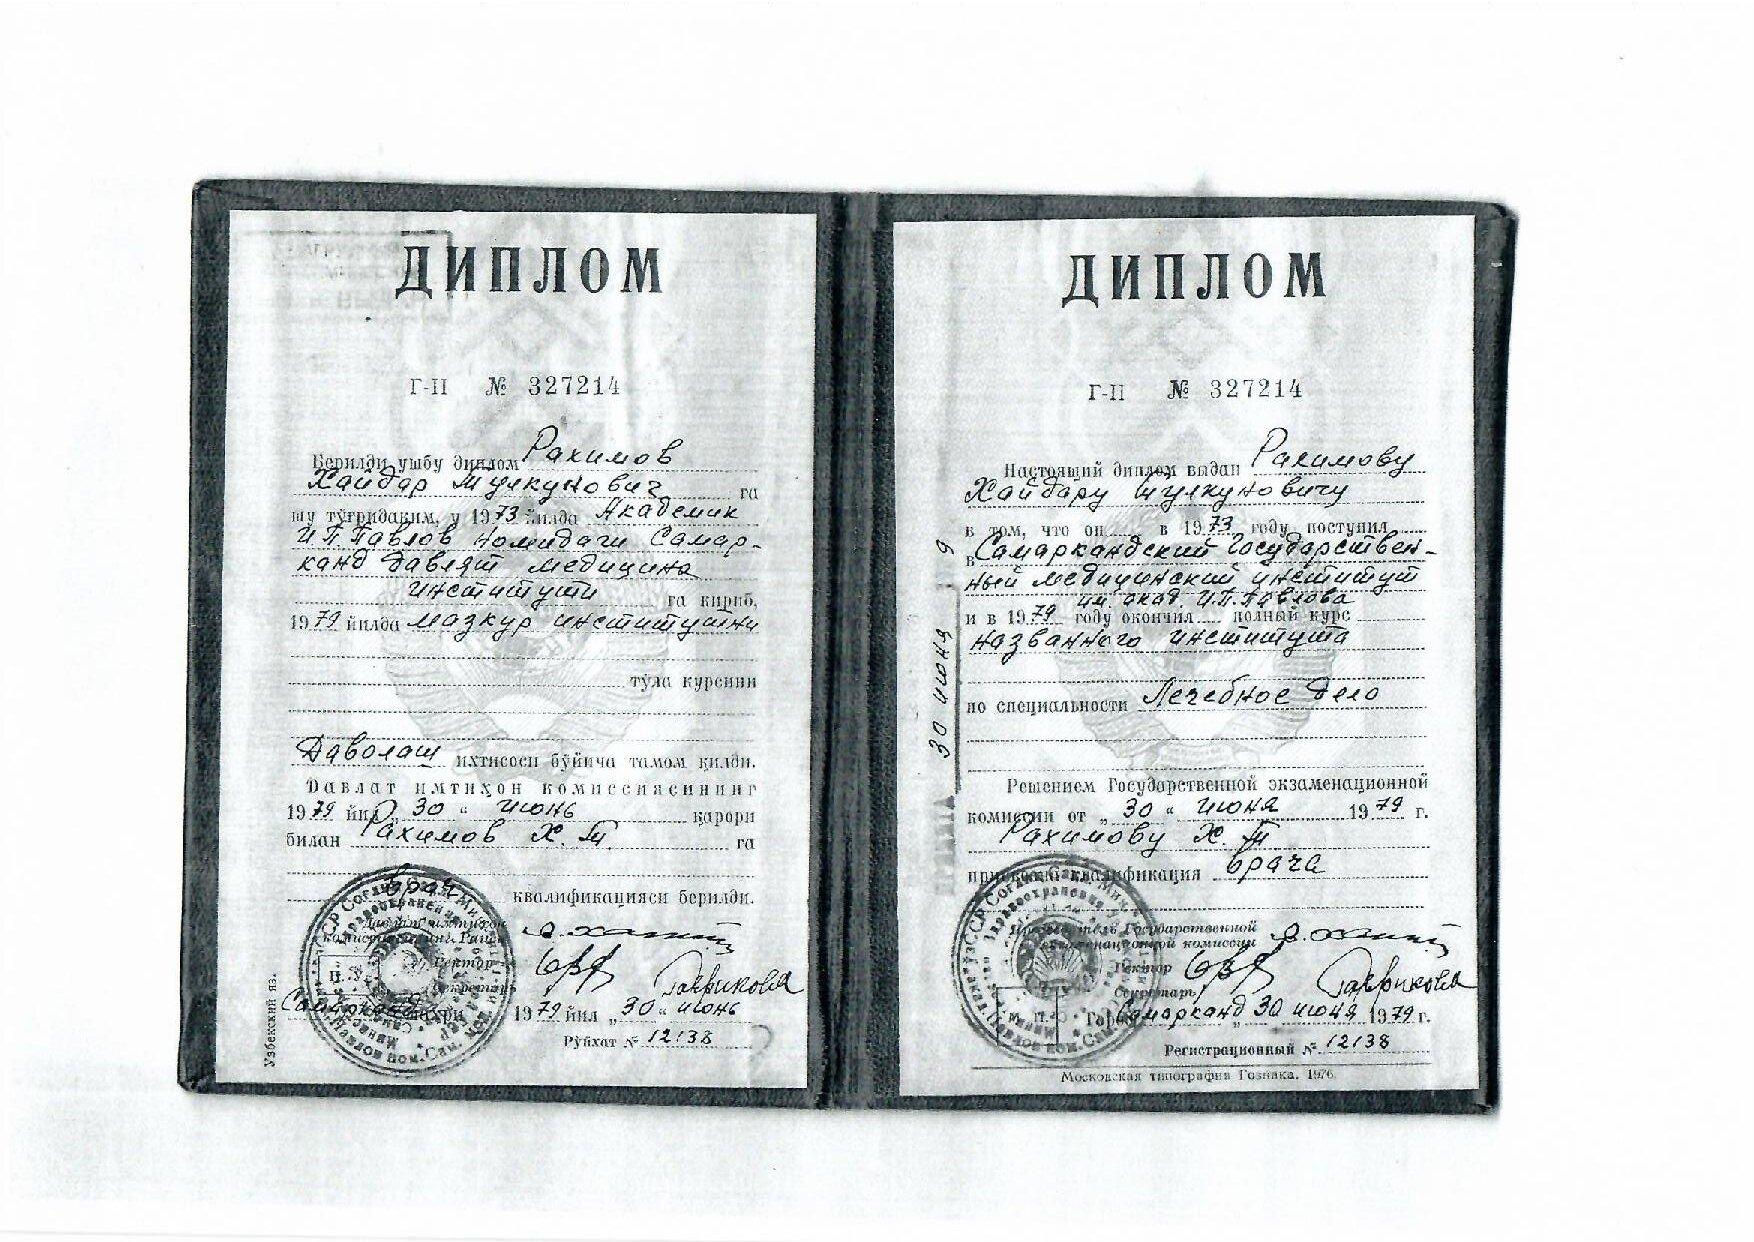 ДИПЛОМ
Г-II № 327214
Берилди ушбу диплом Рахимов
Хайдар Тулкунович га
шу тўғридаким, у 1973 йилда Академик
И.П.Павлов номидаги Самар-
канд Давлат медицина
институти га кириб,
1979 йилда мазкур институтни
тўла курсини
Даволаш ихтисоси бўйича тамом қилди.
Давлат имтиҳон комиссиясининг
1979 йил „30“ июнь қарори
билан Рахимов Х. Т. га
врач квалификацияси берилди.
Давлат имтиҳон
комиссиясининг
Ректор
Секретарь
Самарканд шаҳри 1979 йил „30“ июнь
Рўйхат № 12138
Узбекский яз.
ДИПЛОМ
Г-II № 327214
Настоящий диплом выдан Рахимову
Хайдару Тулкуновичу
в том, что он в 1973 году поступил
в Самаркандский Государствен-
ный медицинский институт
им. акад. И.П.Павлова
и в 1979 году окончил полный курс
названного института
по специальности Лечебное дело
Решением Государственной экзаменационной
комиссии от „30“ июня 1979 г.
Рахимову Х. Т.
присвоена квалификация врача
Председатель Государственной
экзаменационной комиссии
Ректор
Секретарь
Город Самарканд 30 июня 1979 г.
Регистрационный № 12138
Московская типография Гознака. 1976.
30 июня